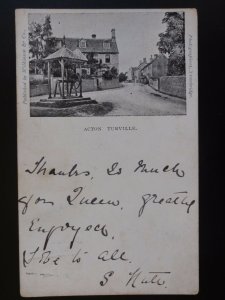 Published by W. Gibbons & Co.
ACTON TURVILLE.
Thanks, So Much
for Queen, greatly
Enjoyed,
Love to all.
S